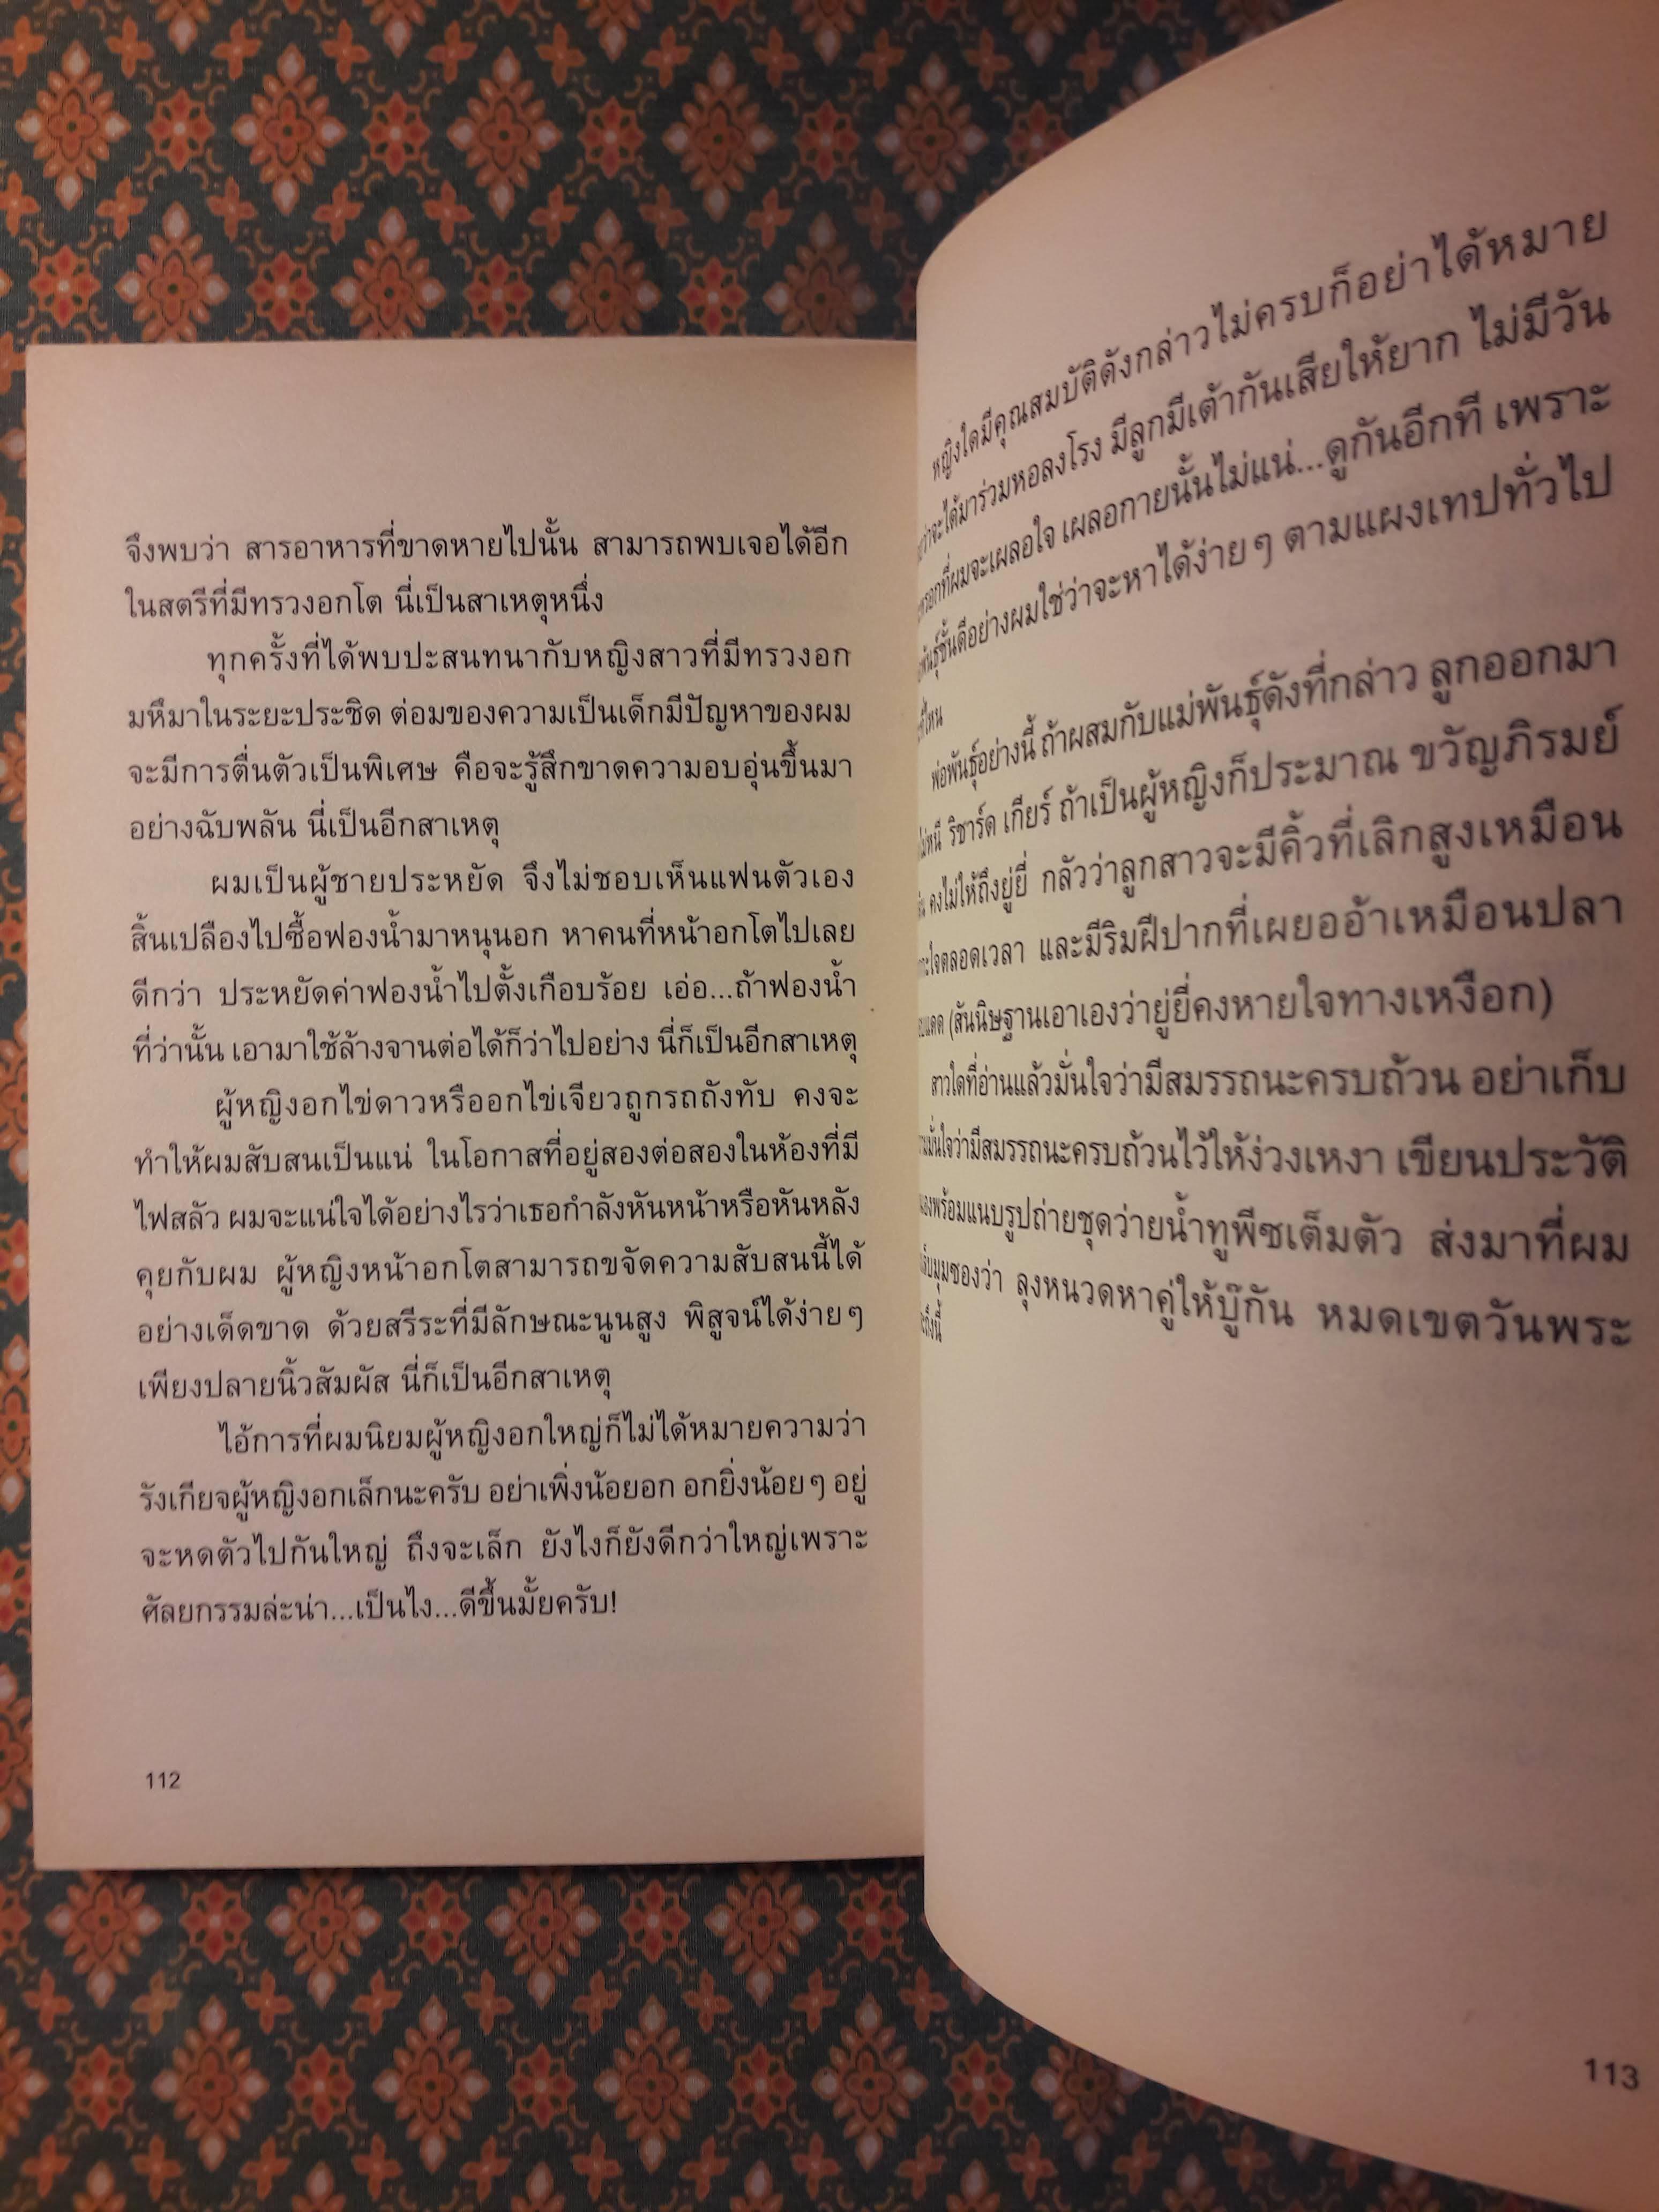 จึงพบว่า สารอาหารที่ขาดหายไปนั้น สามารถพบเจอได้อีก
ในสตรีที่มีทรวงอกโต นี่เป็นสาเหตุหนึ่ง
ทุกครั้งที่ได้พบปะสนทนากับหญิงสาวที่มีทรวงอก
มหึมาในระยะประชิด ต่อมของความเป็นเด็กมีปัญหาของผม
จะมีการตื่นตัวเป็นพิเศษ คือจะรู้สึกขาดความอบอุ่นขึ้นมา
อย่างฉับพลัน นี่เป็นอีกสาเหตุ
ผมเป็นผู้ชายประหยัด จึงไม่ชอบเห็นแฟนตัวเอง
สิ้นเปลืองไปซื้อฟองน้ำมาหนุนอก หาคนที่หน้าอกโตไปเลย
ดีกว่า ประหยัดค่าฟองน้ำไปตั้งเกือบร้อย เอ่อ...ถ้าฟองน้ำ
ที่ว่านั้น เอามาใช้ล้างจานต่อได้ก็ว่าไปอย่าง นี่ก็เป็นอีกสาเหตุ
ผู้หญิงอกไข่ดาวหรืออกไข่เจียวถูกรถถังทับ คงจะ
ทำให้ผมสับสนเป็นแน่ ในโอกาสที่อยู่สองต่อสองในห้องที่มี
ไฟสลัว ผมจะแน่ใจได้อย่างไรว่าเธอกำลังหันหน้าหรือหันหลัง
คุยกับผม ผู้หญิงหน้าอกโตสามารถขจัดความสับสนนี้ได้
อย่างเด็ดขาด ด้วยสรีระที่มีลักษณะนูนสูง พิสูจน์ได้ง่ายๆ
เพียงปลายนิ้วสัมผัส นี่ก็เป็นอีกสาเหตุ
ไอ้การที่ผมนิยมผู้หญิงอกใหญ่ก็ไม่ได้หมายความว่า
รังเกียจผู้หญิงอกเล็กนะครับ อย่าเพิ่งน้อยอก อกยิ่งน้อยๆ อยู่
จะหดตัวไปกันใหญ่ ถึงจะเล็ก ยังไงก็ยังดีกว่าใหญ่เพราะ
ศัลยกรรมล่ะน่า...เป็นไง...ดีขึ้นมั้ยครับ!
112
หญิงใดมีคุณสมบัติดังกล่าวไม่ครบก็อย่าได้หมาย
ว่าจะได้มาร่วมหอลงโรง มีลูกมีเต้ากันเสียให้ยาก ไม่มีวัน
หรอกที่ผมจะเผลอใจ เผลอกายนั้นไม่แน่...ดูกันอีกที เพราะ
พันธุ์ชั้นดีอย่างผมใช่ว่าจะหาได้ง่ายๆ ตามแผงเทปทั่วไป
ที่ไหน
พ่อพันธุ์อย่างนี้ ถ้าผสมกับแม่พันธุ์ดังที่กล่าว ลูกออกมา
ไม่หนี ริชาร์ด เกียร์ ถ้าเป็นผู้หญิงก็ประมาณ ขวัญภิรมย์
คงไม่ให้ถึงยู่ยี่ กลัวว่าลูกสาวจะมีคิ้วที่เลิกสูงเหมือน
ใจตลอดเวลา และมีริมฝีปากที่เผยออ้าเหมือนปลา
แดด (สันนิษฐานเอาเองว่ายู่ยี่คงหายใจทางเหงือก)
สาวใดที่อ่านแล้วมั่นใจว่ามีสมรรถนะครบถ้วน อย่าเก็บ
มั่นใจว่ามีสมรรถนะครบถ้วนไว้ให้ง่วงเหงา เขียนประวัติ
พร้อมแนบรูปถ่ายชุดว่ายน้ำทูพีซเต็มตัว ส่งมาที่ผม
มุมซองว่า ลุงหนวดหาคู่ให้บู๊กัน หมดเขตวันพระ
113